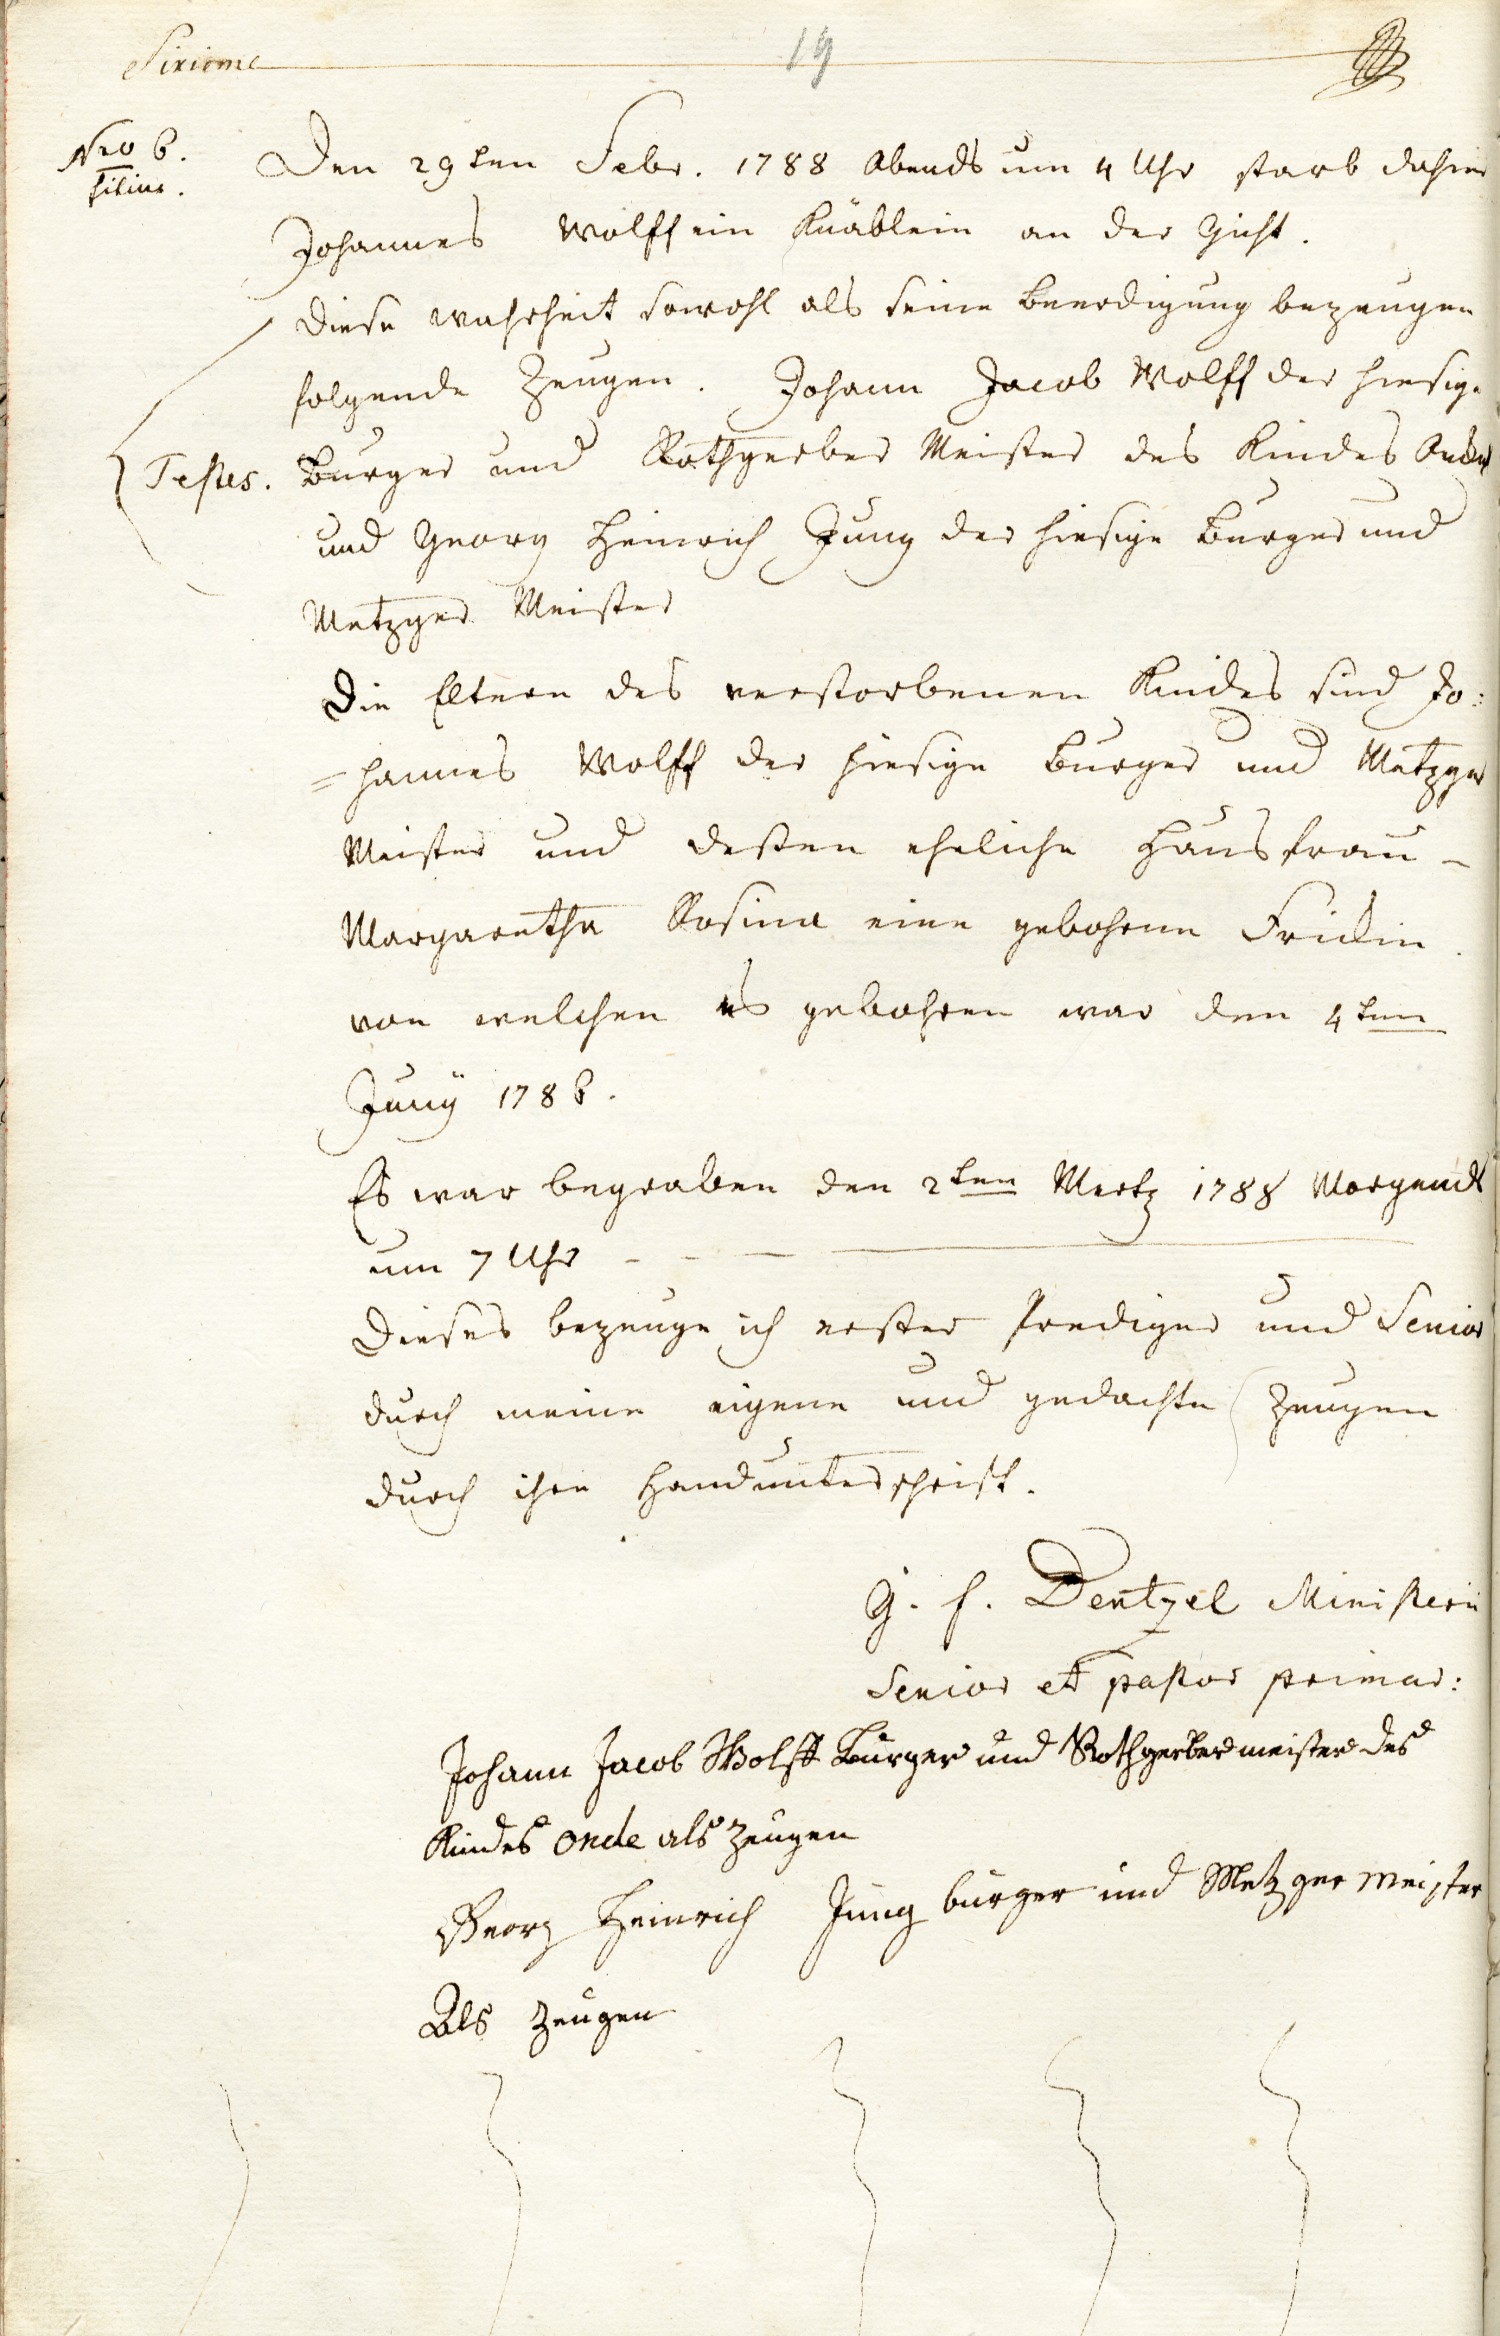 Sixieme
19
Nro 6.
filius.
Den 29ten Febr. 1788 Abends um 4 Uhr starb dahier
Johannes Wolff ein Knäblein an der Gicht.
Diese wahrheit sowohl als seine Beerdigung bezeugen
folgende Zeugen. Johann Jacob Wolff der hiesige
Testes.
Burger und Rothgerber Meister des Kindes Onckel
und Georg Heinrich Jung der hiesige Burger und
Metzger Meister
Die Eltern des verstorbenen Kindes sind Jo:
=hannes Wolff der hiesige Burger und Metzger
Meister und dessen eheliche Hausfrau –
Margaretha Rosina eine gebohrne Frickin
von welchen es gebohren war den 4ten
Junÿ 1786.
Es war begraben den 2ten Mertz 1788 Morgends
um 7 Uhr – – —
Dieses bezeuge ich erster Prediger und Senior
durch meine eigene und gedachte Zeugen
durch ihre Handunterschrift.
G. f. Dentzel Ministerii
Senior et pastor primar:
Johann Jacob Wolff Burger und Rothgerbermeister des
Kindes oncle als Zeugen
Georg Heinrich Jung burger und Metzger meister
Als Zeugen